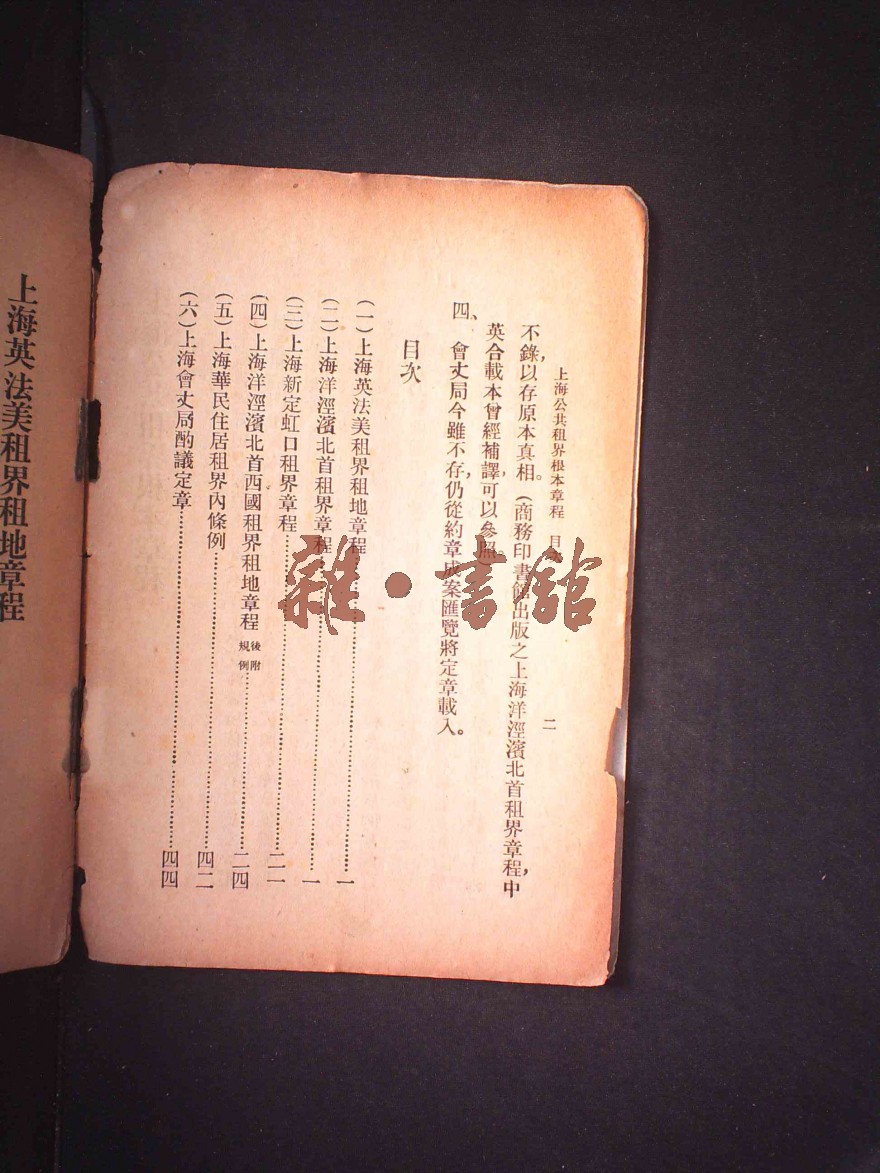 上海公共租界根本章程　目次　二
不錄,以存原本真相。(商務印書館出版之上海洋涇濱北首租界章程,中
英合載本曾經補譯,可以參照。)
四、會丈局今雖不存,仍從約章成案匯覽將定章載入。
目次
(一)上海英法美租界租地章程……一
(二)上海洋涇濱北首租界章程……一
(三)上海新定虹口租界章程……二一
(四)上海洋涇濱北首西國租界租地章程 後附規例……二四
(五)上海華民住居租界內條例……四二
(六)上海會丈局酌議定章……四四
上海英法美租界租地章程
雜·書館